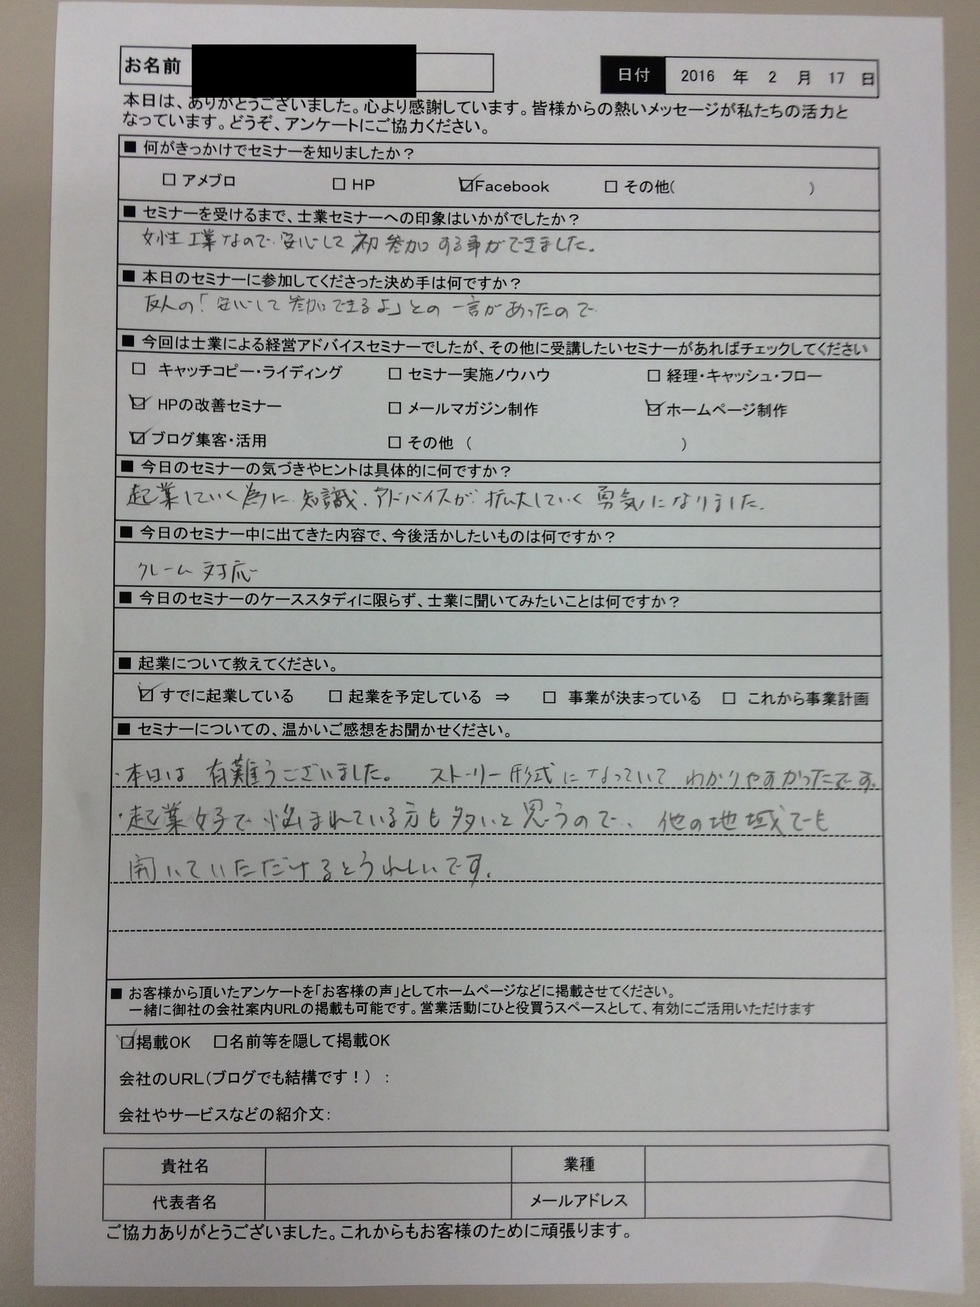 お名前
日付 2016 年 2 月 17 日
本日は、ありがとうございました。心より感謝しています。皆様からの熱いメッセージが私たちの活力と
なっています。どうぞ、アンケートにご協力ください。
■ 何がきっかけでセミナーを知りましたか？
□ アメブロ □ HP ☑Facebook □ その他( )
■ セミナーを受けるまで、士業セミナーへの印象はいかがでしたか？
女性士業なので、安心して初参加する事ができました。
■ 本日のセミナーに参加してくださった決め手は何ですか？
友人の「安心して参加できるよ」との一言があったので
■ 今回は士業による経営アドバイスセミナーでしたが、その他に受講したいセミナーがあればチェックしてください
□ キャッチコピー・ライディング □ セミナー実施ノウハウ □ 経理・キャッシュ・フロー
☑ HPの改善セミナー □ メールマガジン制作 ☑ ホームページ制作
☑ ブログ集客・活用 □ その他 （ ）
■ 今日のセミナーの気づきやヒントは具体的に何ですか？
起業していく為に 知識、アドバイスが 拡大していく 勇気になりました。
■ 今日のセミナー中に出てきた内容で、今後活かしたいものは何ですか？
クレーム 対応
■ 今日のセミナーのケーススタディに限らず、士業に聞いてみたいことは何ですか？
■ 起業について教えてください。
☑ すでに起業している □ 起業を予定している ⇒ □ 事業が決まっている □ これから事業計画
■ セミナーについての、温かいご感想をお聞かせください。
・本日は 有難うございました。 ストーリー形式になっていて わかりやすかったです。
・起業女子で 悩まれている方も多いと思うので、 他の地域でも
開いていただけるとうれしいです。
■ お客様から頂いたアンケートを「お客様の声」としてホームページなどに掲載させてください。
一緒に御社の会社案内URLの掲載も可能です。営業活動にひと役買うスペースとして、有効にご活用いただけます
☑掲載OK □名前等を隠して掲載OK
会社のURL（ブログでも結構です！）：
会社やサービスなどの紹介文：
貴社名 業種
代表者名 メールアドレス
ご協力ありがとうございました。これからもお客様のために頑張ります。